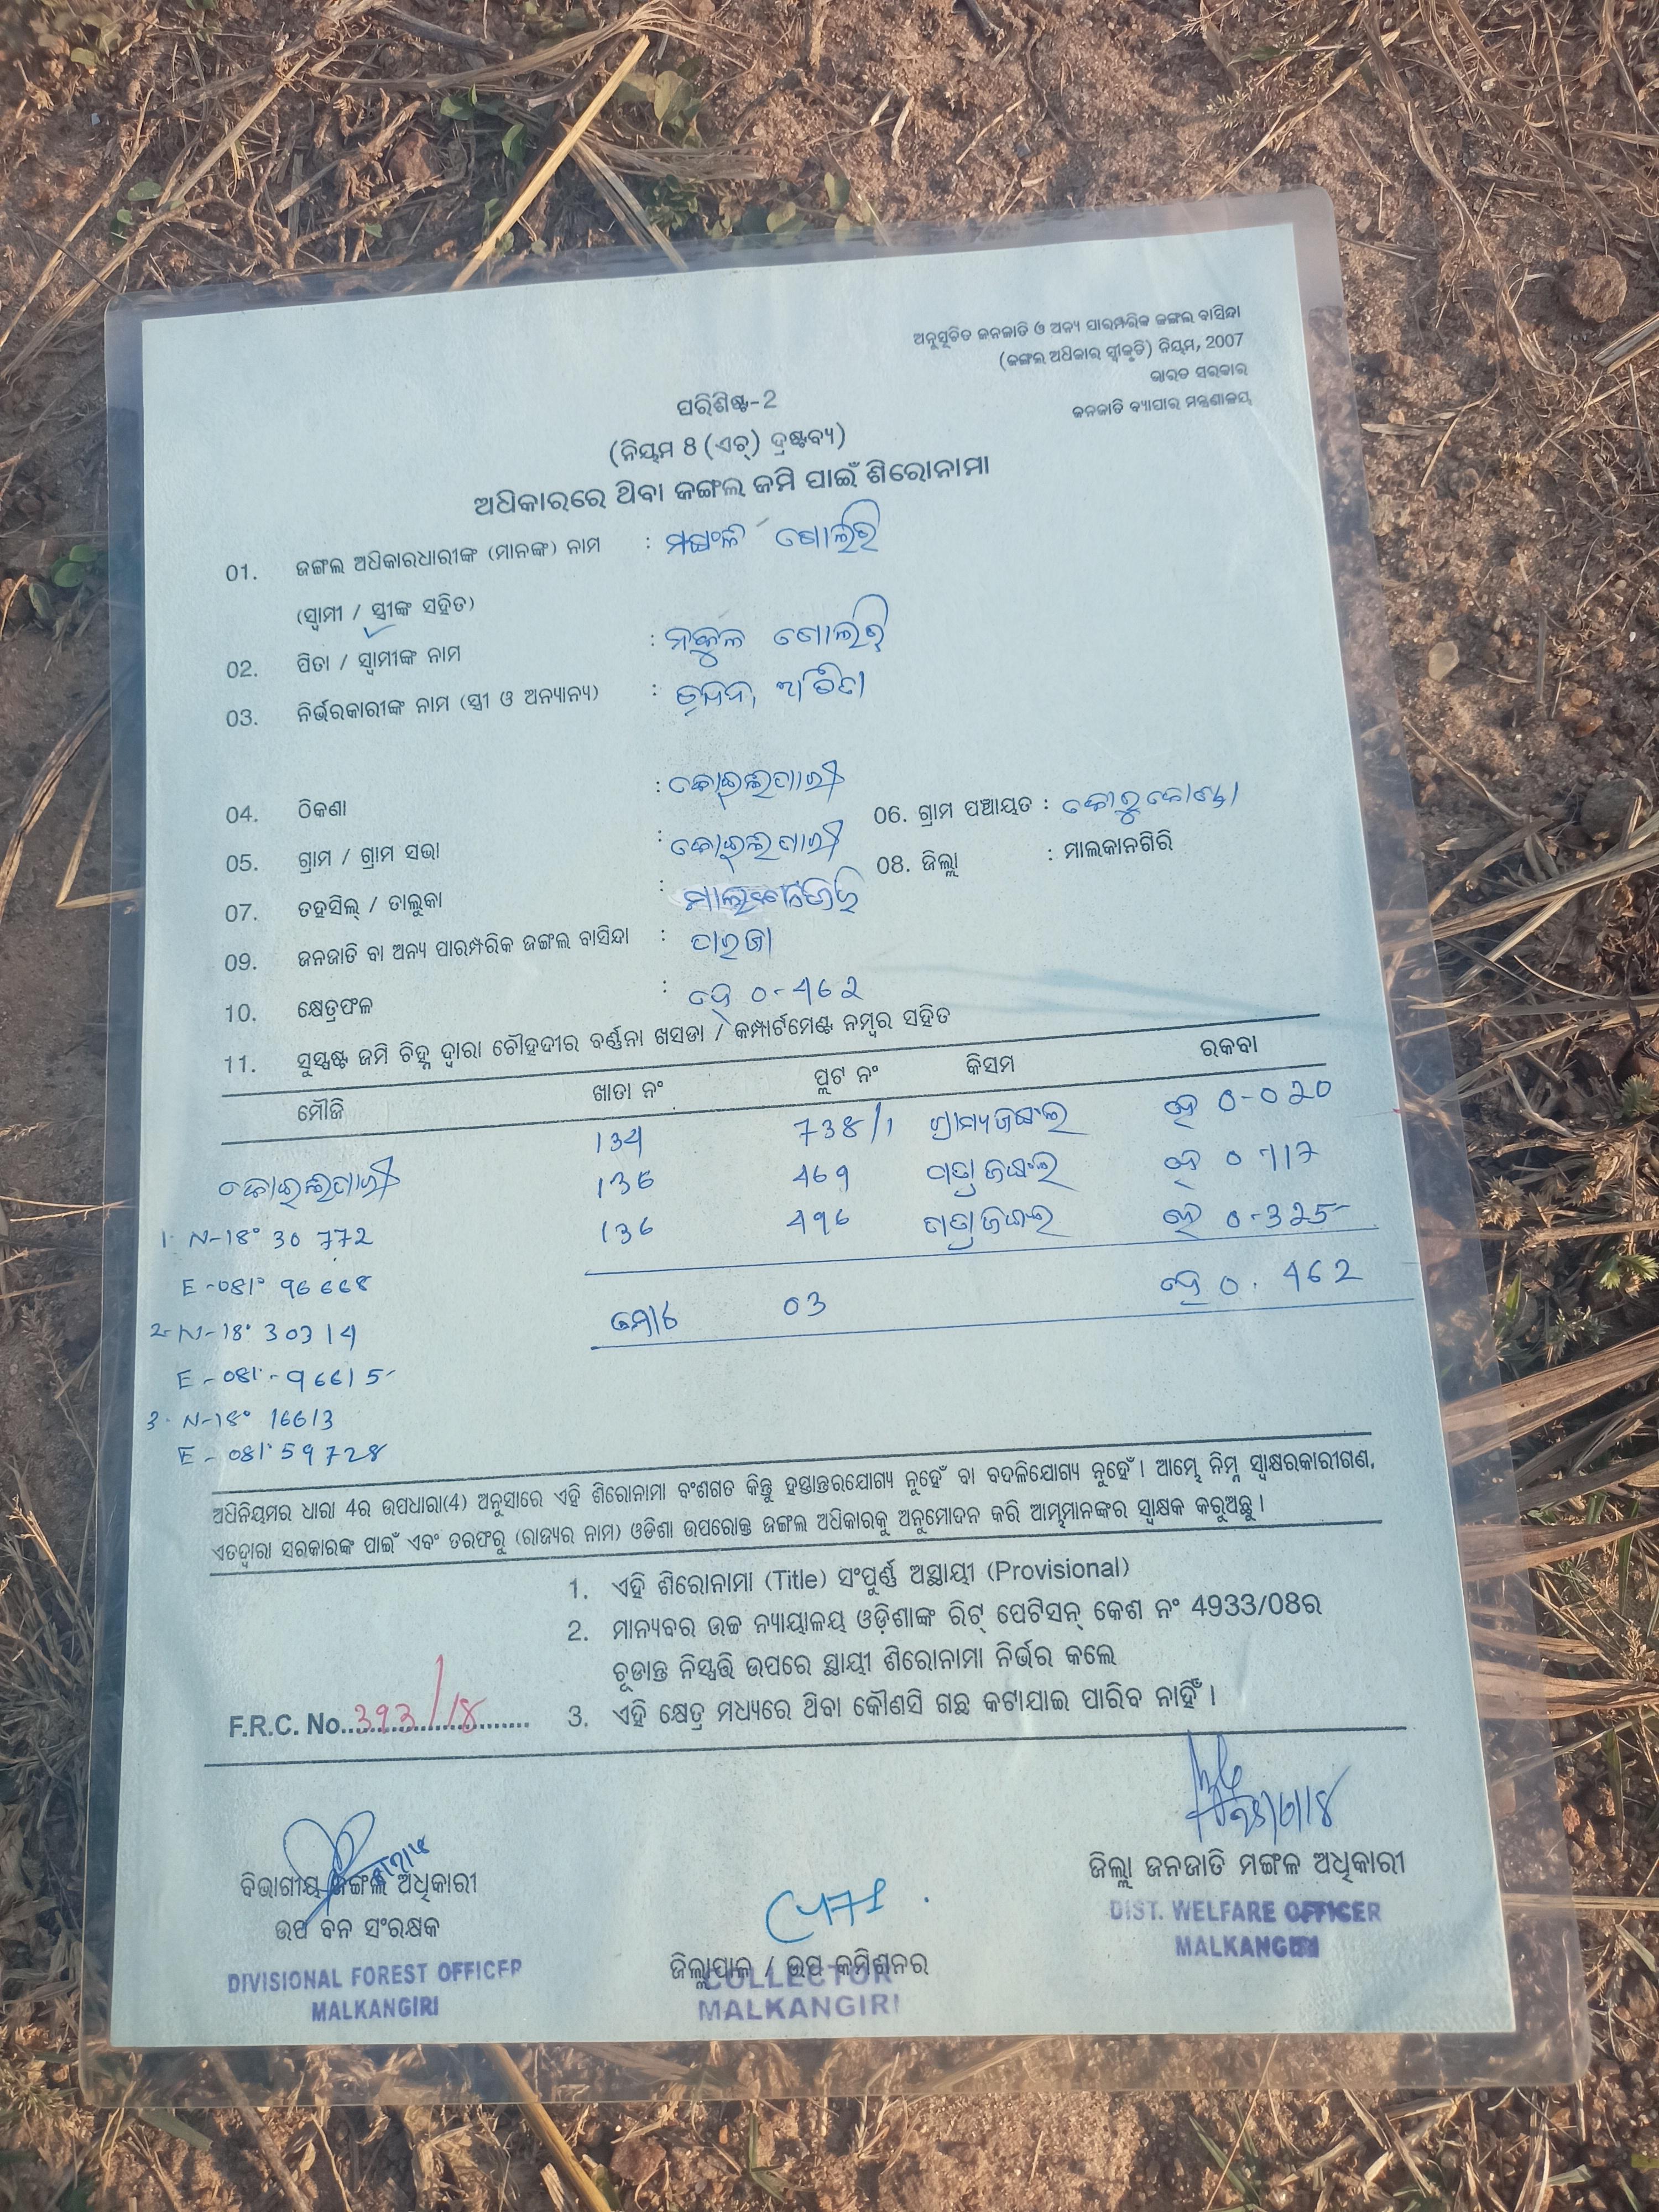 ଅନୁସୂଚିତ ଜନଜାତି ଓ ଅନ୍ୟ ପାରମ୍ପରିକ ଜଙ୍ଗଲ ବାସିନ୍ଦା
(ଜଙ୍ଗଲ ଅଧିକାର ସ୍ୱୀକୃତି) ନିୟମ, 2007
ଭାରତ ସରକାର
ଜନଜାତି ବ୍ୟାପାର ମନ୍ତ୍ରଣାଳୟ
ପରିଶିଷ୍ଟ-2
(ନିୟମ 8 (ଏଚ୍) ଦ୍ରଷ୍ଟବ୍ୟ)
ଅଧିକାରରେ ଥିବା ଜଙ୍ଗଲ ଜମି ପାଇଁ ଶିରୋନାମା
01. ଜଙ୍ଗଲ ଅଧିକାରଧାରୀଙ୍କ (ମାନଙ୍କ) ନାମ :
(ସ୍ୱାମୀ / ସ୍ତ୍ରୀଙ୍କ ସହିତ)
02. ପିତା / ସ୍ୱାମୀଙ୍କ ନାମ :
03. ନିର୍ଭରକାରୀଙ୍କ ନାମ (ସ୍ତ୍ରୀ ଓ ଅନ୍ୟାନ୍ୟ) :
04. ଠିକଣା :
05. ଗ୍ରାମ / ଗ୍ରାମ ସଭା : 06. ଗ୍ରାମ ପଞ୍ଚାୟତ : କୋରୁକୋଣ୍ଡା
07. ତହସିଲ୍ / ତାଲୁକା : ମାଲକାନଗିରି 08. ଜିଲ୍ଲା : ମାଲକାନଗିରି
09. ଜନଜାତି ବା ଅନ୍ୟ ପାରମ୍ପରିକ ଜଙ୍ଗଲ ବାସିନ୍ଦା : ପାରଜା
10. କ୍ଷେତ୍ରଫଳ : ହେ 0-462
11. ସୁସ୍ପଷ୍ଟ ଜମି ଚିହ୍ନ ଦ୍ୱାରା ଚୌହଦୀର ବର୍ଣ୍ଣନା ଖସଡା / କମ୍ପାର୍ଟମେଣ୍ଟ ନମ୍ବର ସହିତ
ମୌଜି ଖାତା ନଂ ପ୍ଲଟ ନଂ କିସମ ରକବା
134 738/1 ଗ୍ରାମ୍ୟଜଙ୍ଗଲ ହେ 0-020
136 469 ପତ୍ରାଜଙ୍ଗଲ ହେ 0-117
136 496 ପତ୍ରାଜଙ୍ଗଲ ହେ 0-325
1. N-18° 30 772
E-081° 96668
2- N-18° 30314
E-081°-96615
3. N-18° 16613
E-081° 59728
ମୋଟ 03 ହେ 0.462
ଅଧିନିୟମର ଧାରା 4ର ଉପଧାରା(4) ଅନୁସାରେ ଏହି ଶିରୋନାମା ବଂଶଗତ କିନ୍ତୁ ହସ୍ତାନ୍ତରଯୋଗ୍ୟ ନୁହେଁ ବା ବଦଳିଯୋଗ୍ୟ ନୁହେଁ । ଆମ୍ଭେ ନିମ୍ନ ସ୍ୱାକ୍ଷରକାରୀଗଣ,
ଏତଦ୍ୱାରା ସରକାରଙ୍କ ପାଇଁ ଏବଂ ତରଫରୁ (ରାଜ୍ୟର ନାମ) ଓଡିଶା ଉପରୋକ୍ତ ଜଙ୍ଗଲ ଅଧିକାରକୁ ଅନୁମୋଦନ କରି ଆମ୍ଭମାନଙ୍କର ସ୍ୱାକ୍ଷକ କରୁଅଛୁ ।
1. ଏହି ଶିରୋନାମା (Title) ସଂପୂର୍ଣ୍ଣ ଅସ୍ଥାୟୀ (Provisional)
2. ମାନ୍ୟବର ଉଚ୍ଚ ନ୍ୟାୟାଳୟ ଓଡ଼ିଶାଙ୍କ ରିଟ୍ ପେଟିସନ୍ କେଶ ନଂ 4933/08ର
ଚୂଡାନ୍ତ ନିସ୍ପତ୍ତି ଉପରେ ସ୍ଥାୟୀ ଶିରୋନାମା ନିର୍ଭର କଲେ
3. ଏହି କ୍ଷେତ୍ର ମଧ୍ୟରେ ଥିବା କୌଣସି ଗଛ କଟାଯାଇ ପାରିବ ନାହିଁ ।
F.R.C. No. 393/18
ବିଭାଗୀୟ ଜଙ୍ଗଲ ଅଧିକାରୀ
ଉପ ବନ ସଂରକ୍ଷକ
DIVISIONAL FOREST OFFICER
MALKANGIRI
ଜିଲ୍ଲାପାଳ / ଉପ କମିଶନର
COLLECTOR
MALKANGIRI
ଜିଲ୍ଲା ଜନଜାତି ମଙ୍ଗଳ ଅଧିକାରୀ
DIST. WELFARE OFFICER
MALKANGIRI